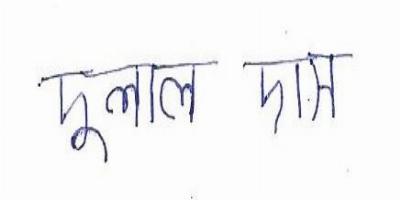 দুলাল দাস